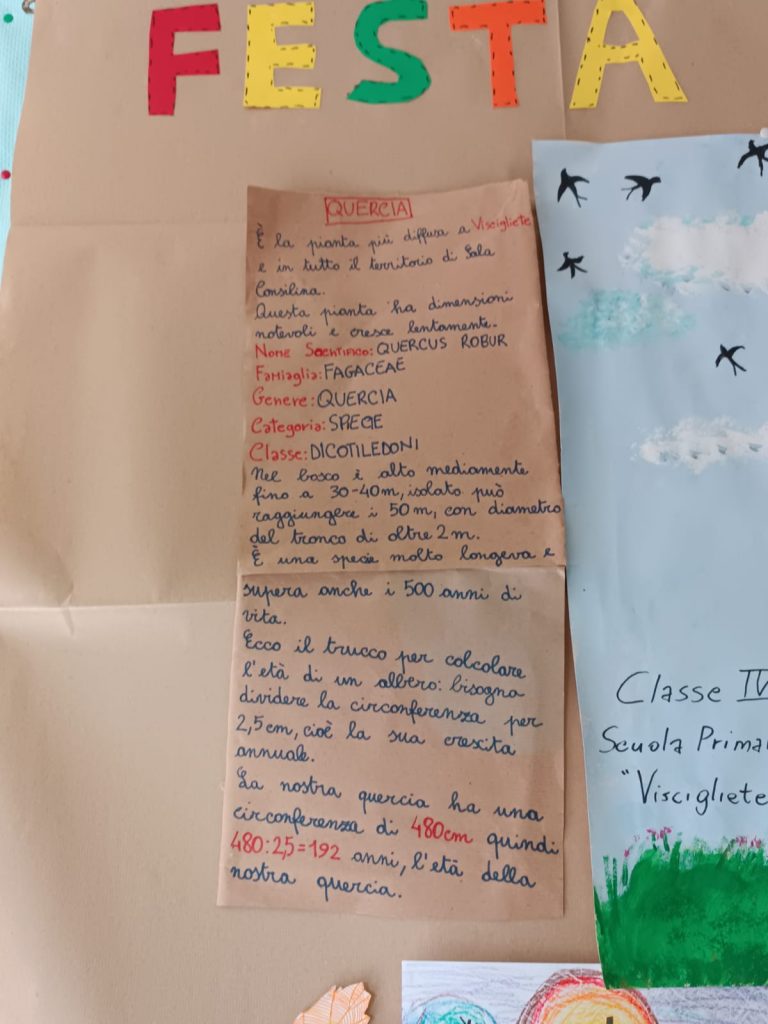 FESTA
QUERCIA
È la pianta più diffusa a Viscigliete
e in tutto il territorio di Sala
Consilina.
Questa pianta ha dimensioni
notevoli e cresce lentamente.
Nome Scientifico: QUERCUS ROBUR
Famiaglia: FAGACEAE
Genere: QUERCIA
Categoria: SPECIE
Classe: DICOTILEDONI
Nel bosco è alto mediamente
fino a 30-40m, isolato può
raggiungere i 50m, con diametro
del tronco di oltre 2m.
È una specie molto longeva e
supera anche i 500 anni di
vita.
Ecco il trucco per colcolare
l'età di un albero: bisogna
dividere la circonferenza per
2,5cm, cioè la sua crescita
annuale.
La nostra quercia ha una
circonferenza di 480cm quindi
480:2,5=192 anni, l'età della
nostra quercia.
Classe IV
Scuola Prima
"Viscigliete